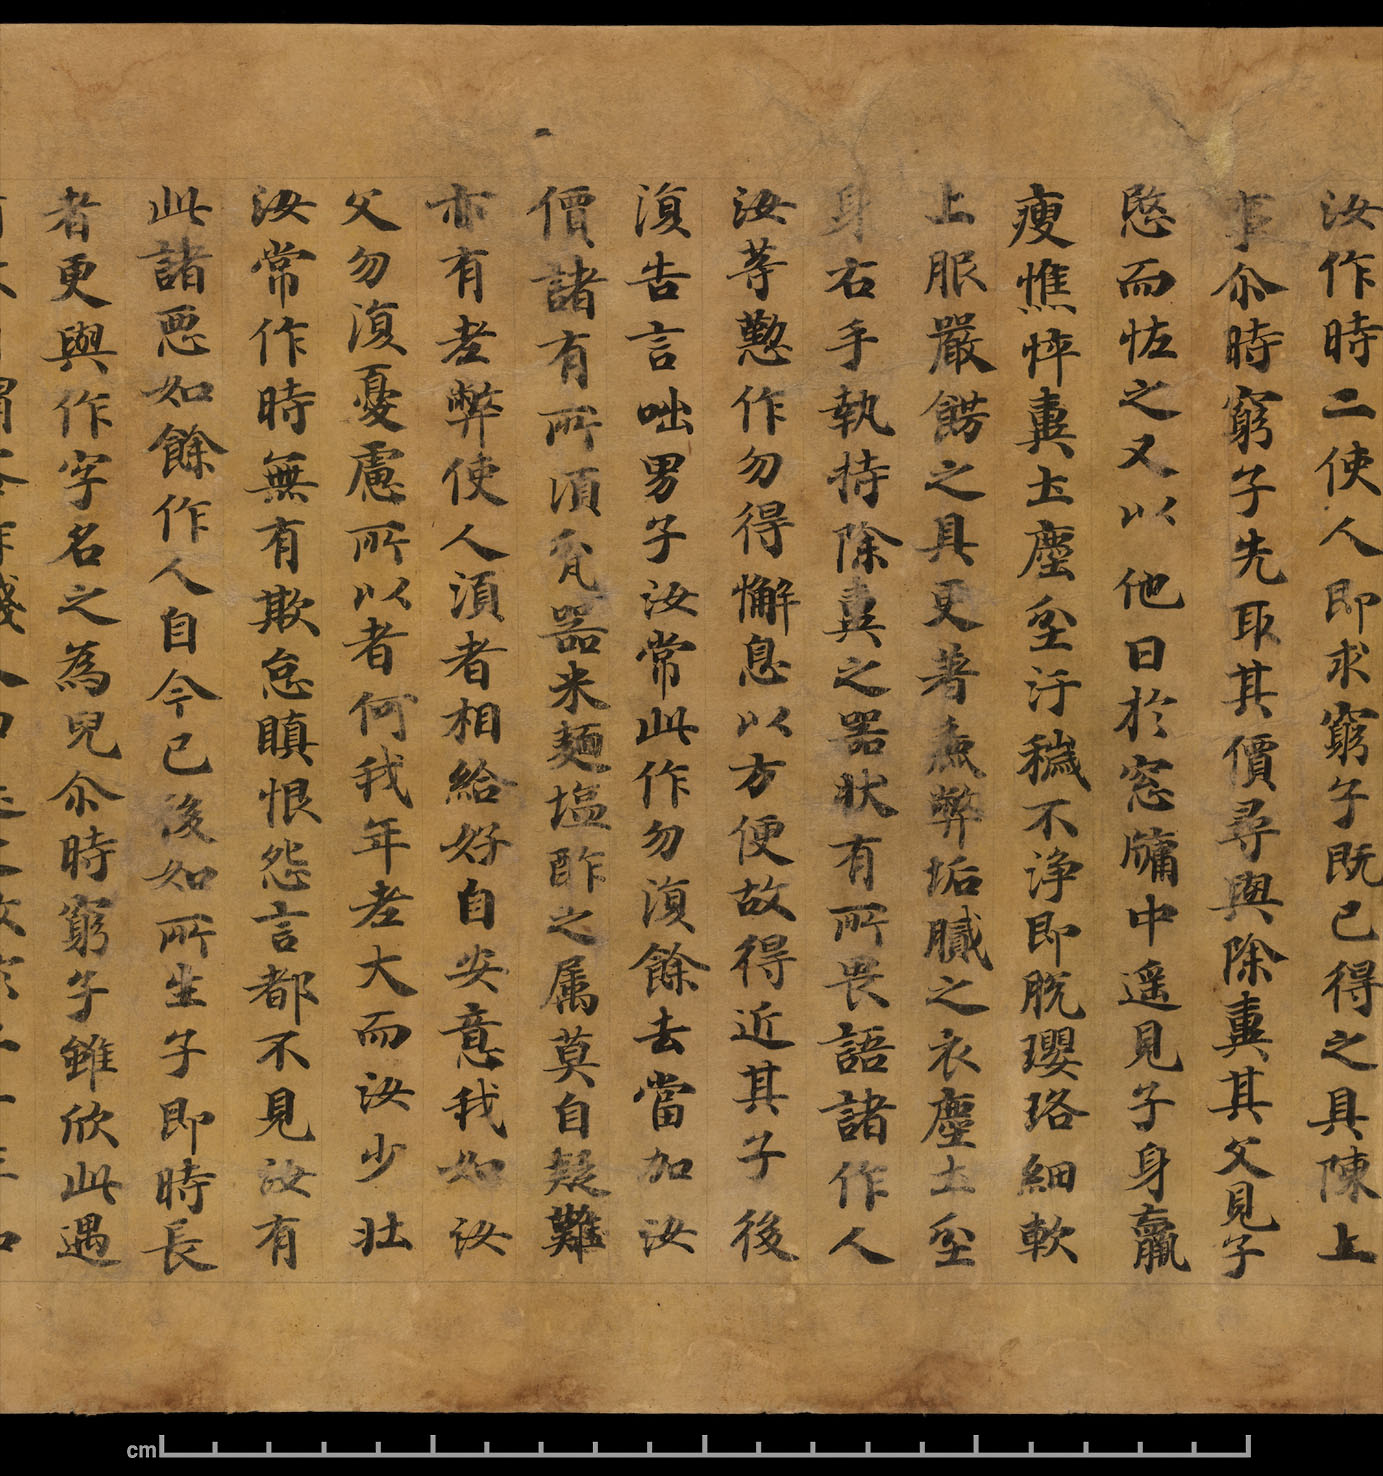 汝作時二使人即求窮子既已得之具陳上
事尒時窮子先取其價尋與除糞其父見子
愍而恠之又以他日於窓牖中遥見子身羸
瘦憔悴糞土塵坌汙穢不浄即脱瓔珞細軟
上服嚴餝之具更著麁弊垢膩之衣塵土坌
身右手執持除糞之器状有所畏語諸作人
汝等懃作勿得懈息以方便故得近其子後
復告言咄男子汝常此作勿復餘去當加汝
價諸有所須瓫器米麺塩酢之属莫自疑難
亦有老弊使人湏者相給好自安意我如汝
父勿復憂慮所以者何我年老大而汝少壮
汝常作時無有欺怠瞋恨怨言都不見汝有
此諸悪如餘作人自今已後如所生子即時長
者更與作字名之為兒尒時窮子雖欣此遇